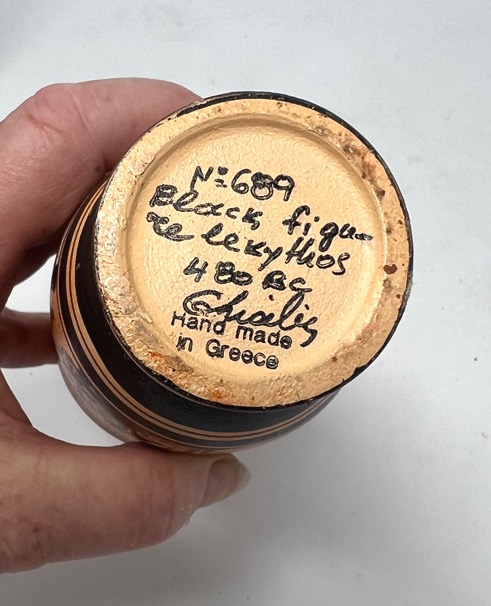 Nº 689
Black figu-
re lekythos
480 BC
Hand made
in Greece